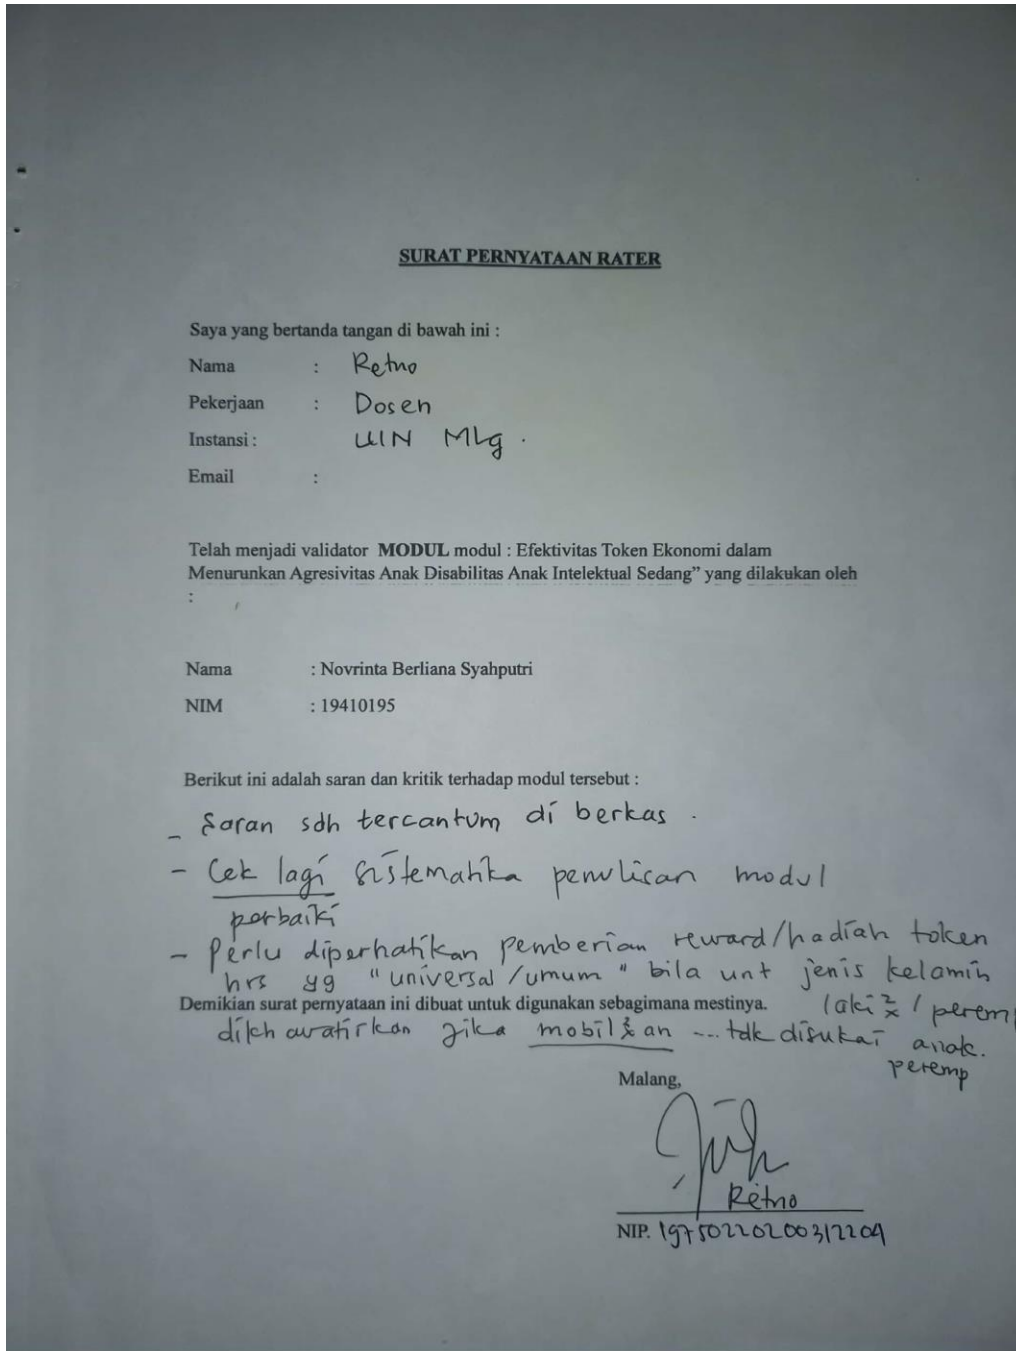 SURAT PERNYATAAN RATER
Saya yang bertanda tangan di bawah ini :
Nama : Retno
Pekerjaan : Dosen
Instansi : UIN Mlg .
Email :
Telah menjadi validator MODUL modul : Efektivitas Token Ekonomi dalam
Menurunkan Agresivitas Anak Disabilitas Anak Intelektual Sedang” yang dilakukan oleh
:
Nama : Novrinta Berliana Syahputri
NIM : 19410195
Berikut ini adalah saran dan kritik terhadap modul tersebut :
- Saran sdh tercantum di berkas .
- Cek lagi sistematika penulisan modul
perbaiki
- Perlu diperhatikan pemberian reward/hadiah token
hrs yg "universal/umum" bila unt jenis kelamin
laki2 / peremp
Demikian surat pernyataan ini dibuat untuk digunakan sebagimana mestinya.
dikhawatirkan jika mobil2an ... tdk disukai anak.
peremp
Malang,
Retno
NIP. 19750220200312204